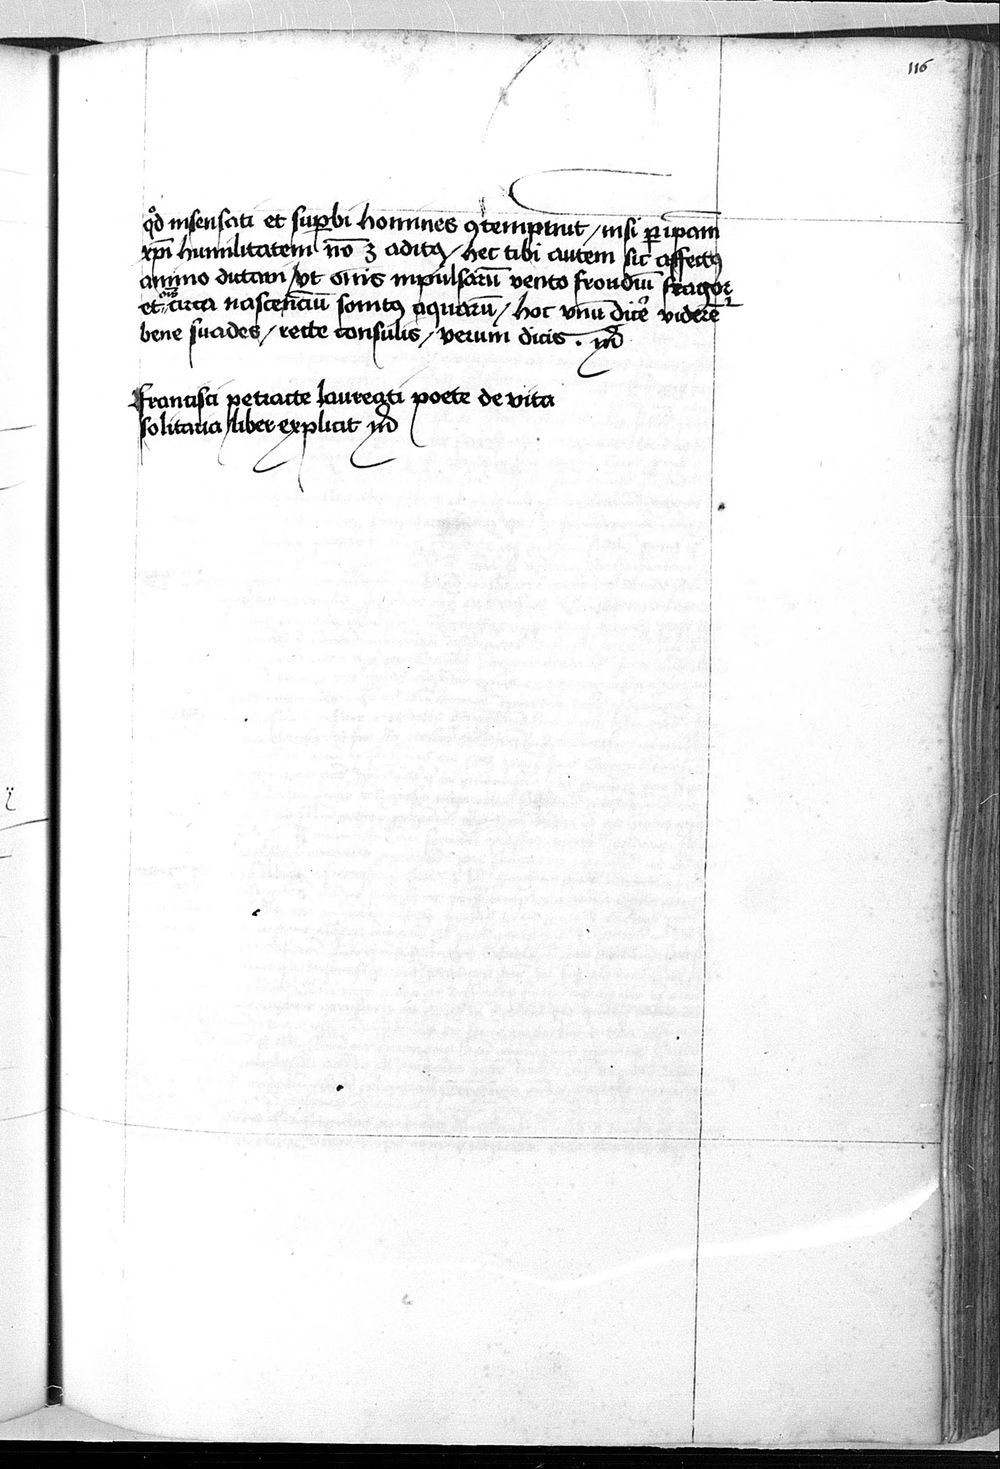 116
qđ insensati et supbi homines ꝯtempnūt / nisi ꝑ ipam
xp̄i humilitatem nō ꝫ aditꝰ / hec tibi autem sic affectꝰ
animo dictam / ut om̄is inpulsarū vento frondiū fragor
et om̄s circa nascenciū sonitꝰ aquarū / hoc vnū dicẽ viderẽ
bene suades / recte consulis / verum dicis .
Francisci petracte laureati poete de vita
solitaria liber explicit